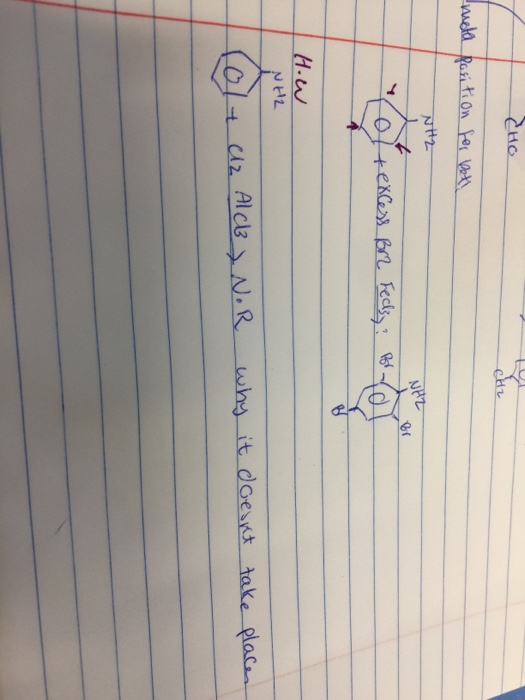 CHO
CH2
meta position for both
NH2
+ excess Br2 FeCl3 : Br Br Br NH2
H.W
NH2
+ Cl2 AlCl3 > N.R why it doesn't take place